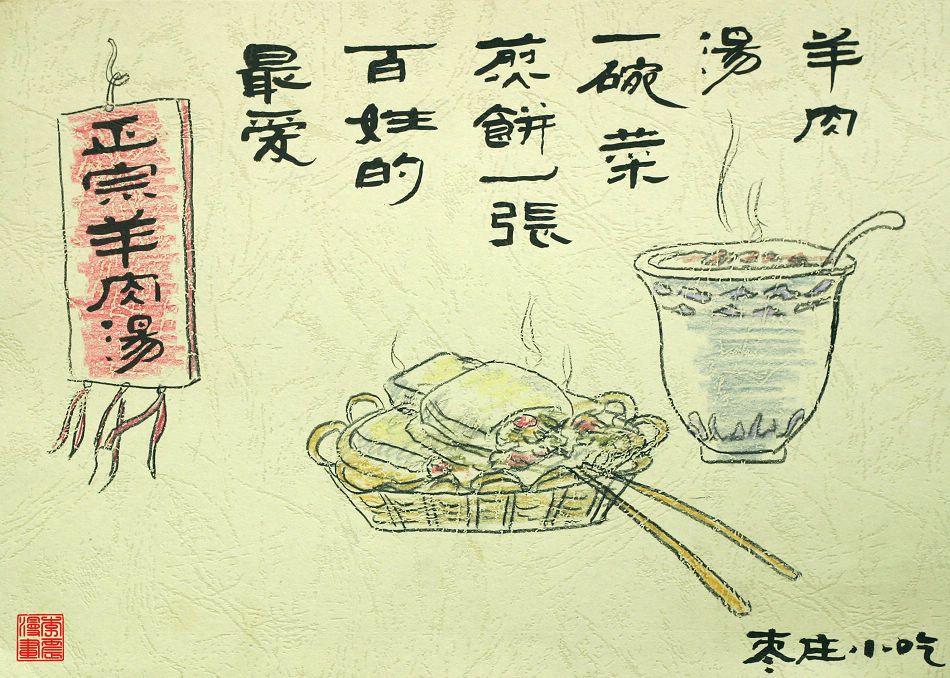 羊肉
湯
一碗菜
煎餅一張
百姓的
最爱
正宗羊肉湯
枣庄小吃
漫畫